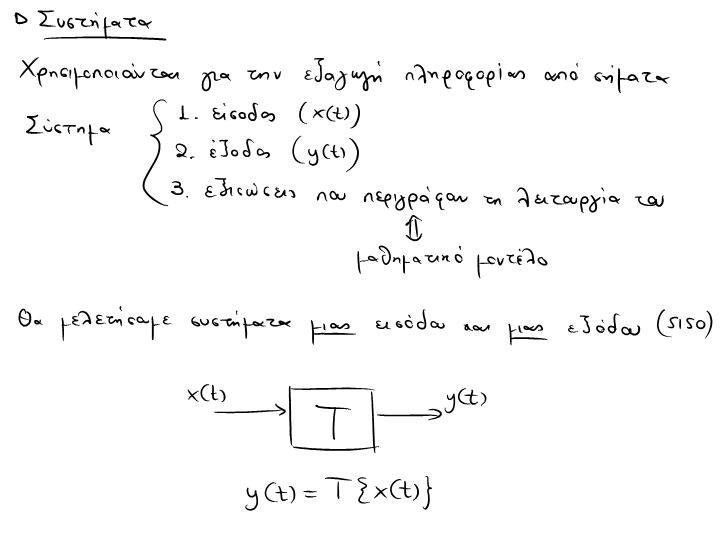 ▷ Συστήματα
Χρησιμοποιούνται για την εξαγωγή πληροφορίας από σήματα
Σύστημα
1. είσοδος (x(t))
2. έξοδος (y(t))
3. εξισώσεις που περιγράφουν τη λειτουργία του
⇕
μαθηματικό μοντέλο
Θα μελετήσουμε συστήματα μιας εισόδου και μιας εξόδου (SISO)
x(t) T y(t)
y(t) = T{x(t)}